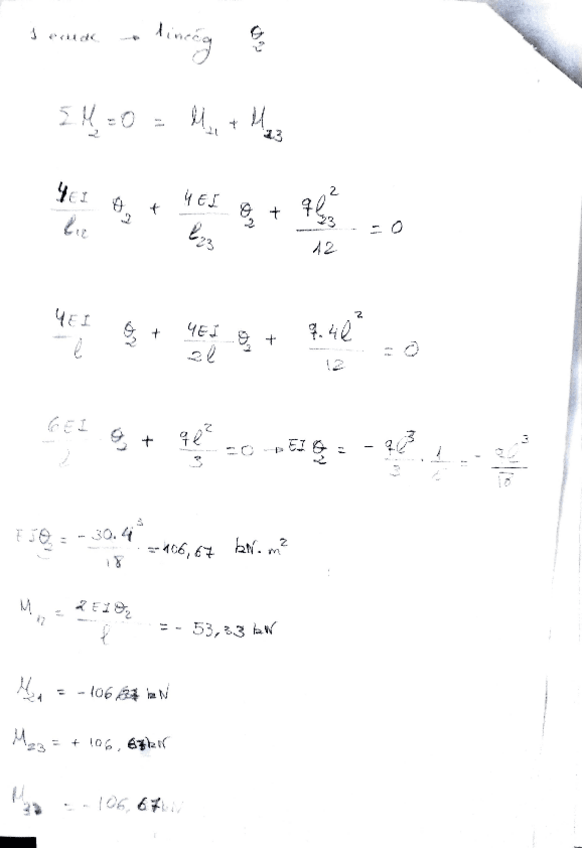 → linéég θ₂
ΣM₂ = 0 = M₂₁ + M₂₃
4EI/l₁₂ θ₂ + 4EI/l₂₃ θ₂ + ql₂₃²/12 = 0
4EI/l θ₂ + 4EI/2l θ₂ + q.4l²/12 = 0
6EI/l θ₂ + ql²/3 = 0 → EIθ₂ = - ql³/3 . 1/6 = - ql³/18
EIθ₂ = - 30.4³/18 = -106,67 kN.m²
M₁₂ = 2EIθ₂/l = - 53,33 kN
M₂₁ = - 106,67 kN
M₂₃ = + 106,67 kN
M₃₂ = - 106,67